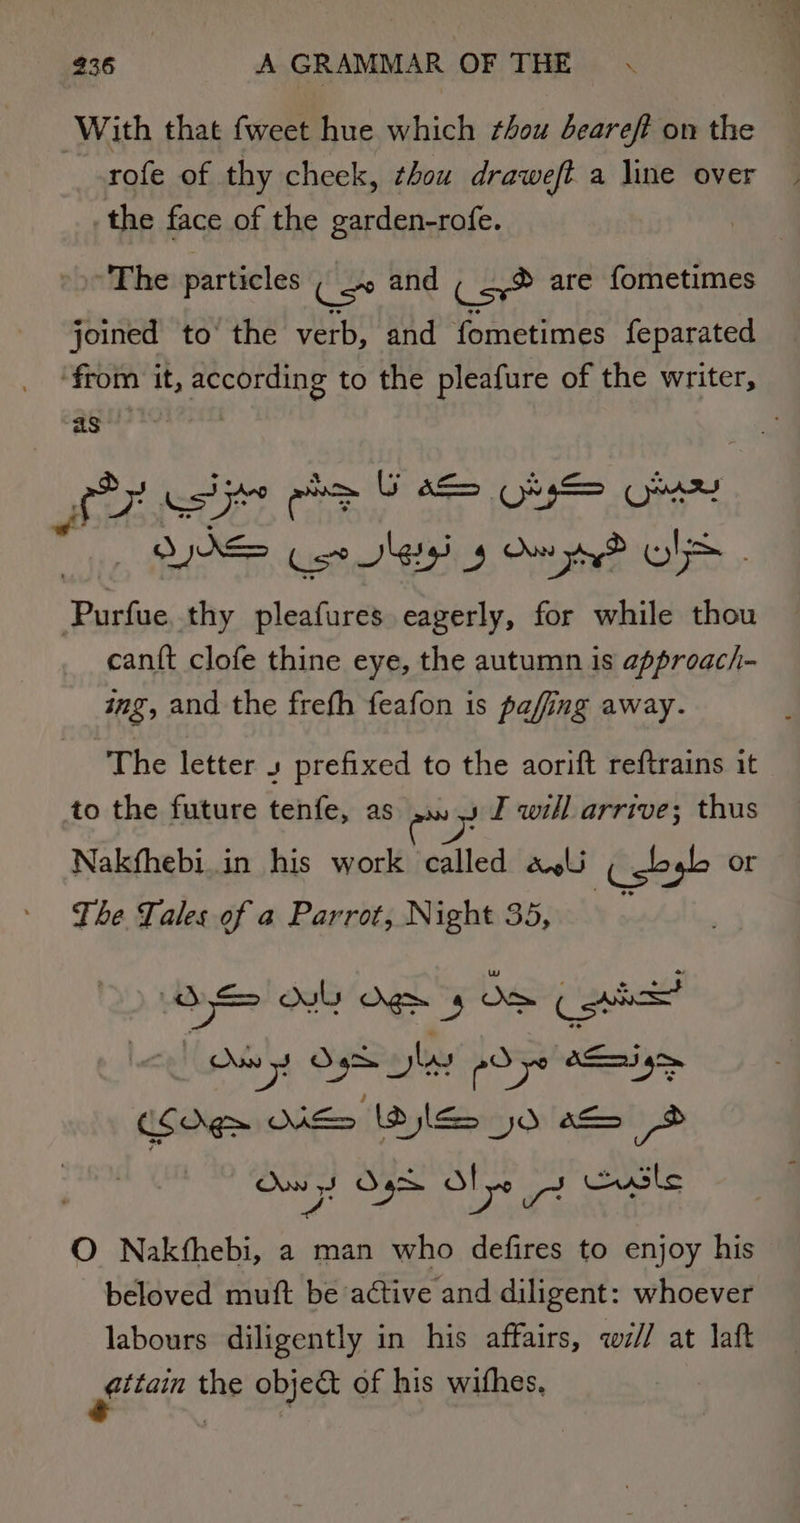 236 A GRAMMAR OF THE
With that ſweet hue which thou beareſt on the
roſe of thy cheek, thou draweſt a line over
the face of the garden-roſe.
The particles می and همی are ſometimes
joined to the verb, and ſometimes ſeparated
from it, according to the pleaſure of the writer,
as
بعیش کوش که تا چشم میزنی برهم
خزان همیرسد و نوبهار می کذرد
Purſue thy pleaſures eagerly, for while thou
canſt cloſe thine eye, the autumn is approach-
ing, and the freſh ſeaſon is paſſing away.
The letter ب prefixed to the aoriſt reſtrains it
to the future tenſe, as برسم I will arrive; thus
Nakſhebi in his work called طوطی نامه or
The Tales of a Parrot, Night 35,
نخشبی جدّ و جهد باید کرد
چونکه مردم بیار خود برسد
هر که در کارها کند جهدی
عاقبت بر مراد خود برسد
O Nakſhebi, a man who deſires to enjoy his
beloved muſt be active and diligent: whoever
labours diligently in his affairs, will at laſt
attain the object of his wiſhes.